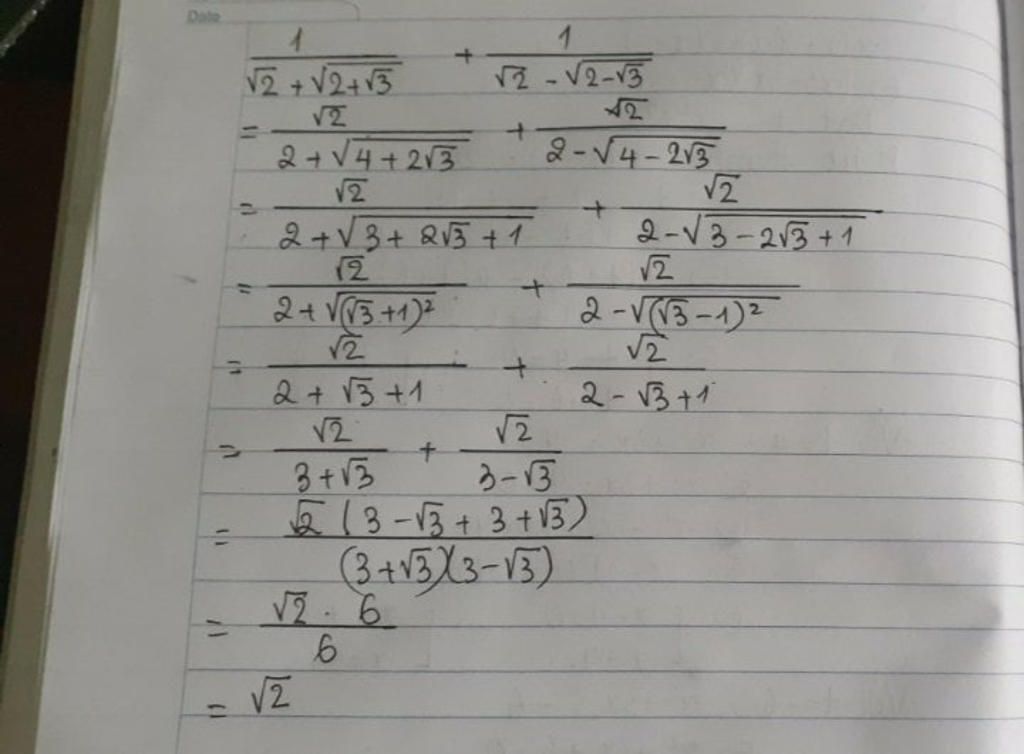 Date
1/(√2 + √(2+√3)) + 1/(√2 - √(2-√3))
= √2/(2 + √(4 + 2√3)) + √2/(2 - √(4 - 2√3))
= √2/(2 + √(3 + 2√3 + 1)) + √2/(2 - √(3 - 2√3 + 1))
= √2/(2 + √((√3 + 1)²)) + √2/(2 - √((√3 - 1)²))
= √2/(2 + √3 + 1) + √2/(2 - √3 + 1)
= √2/(3 + √3) + √2/(3 - √3)
= √2 (3 - √3 + 3 + √3)/((3 + √3)(3 - √3))
= √2 . 6/6
= √2